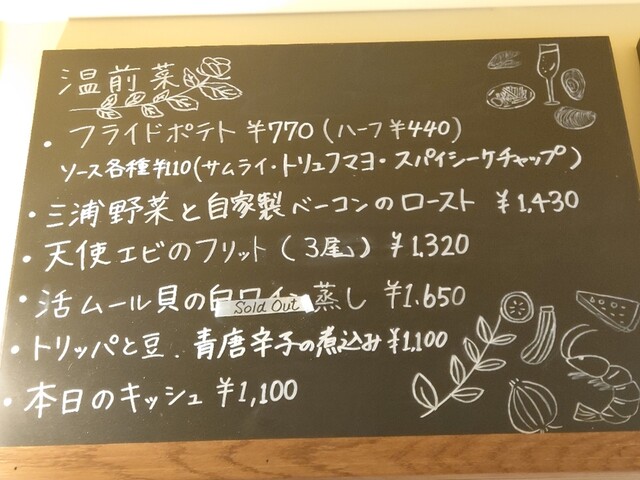 温前菜
・フライドポテト ¥770(ハーフ¥440)
ソース各種¥110(サムライ・トリュフマヨ・スパイシーケチャップ)
・三浦野菜と自家製ベーコンのロースト ¥1,430
・天使エビのフリット(3尾)¥1,320
・活ムール貝の白ワイン蒸し ¥1.650
Sold Out
・トリッパと豆.青唐辛子の煮込み¥1,100
・本日のキッシュ ¥1,100